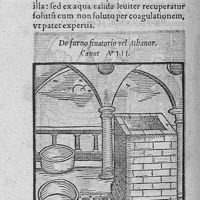 illa: sed ex aqua calida leuiter recuperatur
solutũ cum non soluto per coagulationem,
vt patet expertis.
De furno fixatorio vel Athanor.
Caput